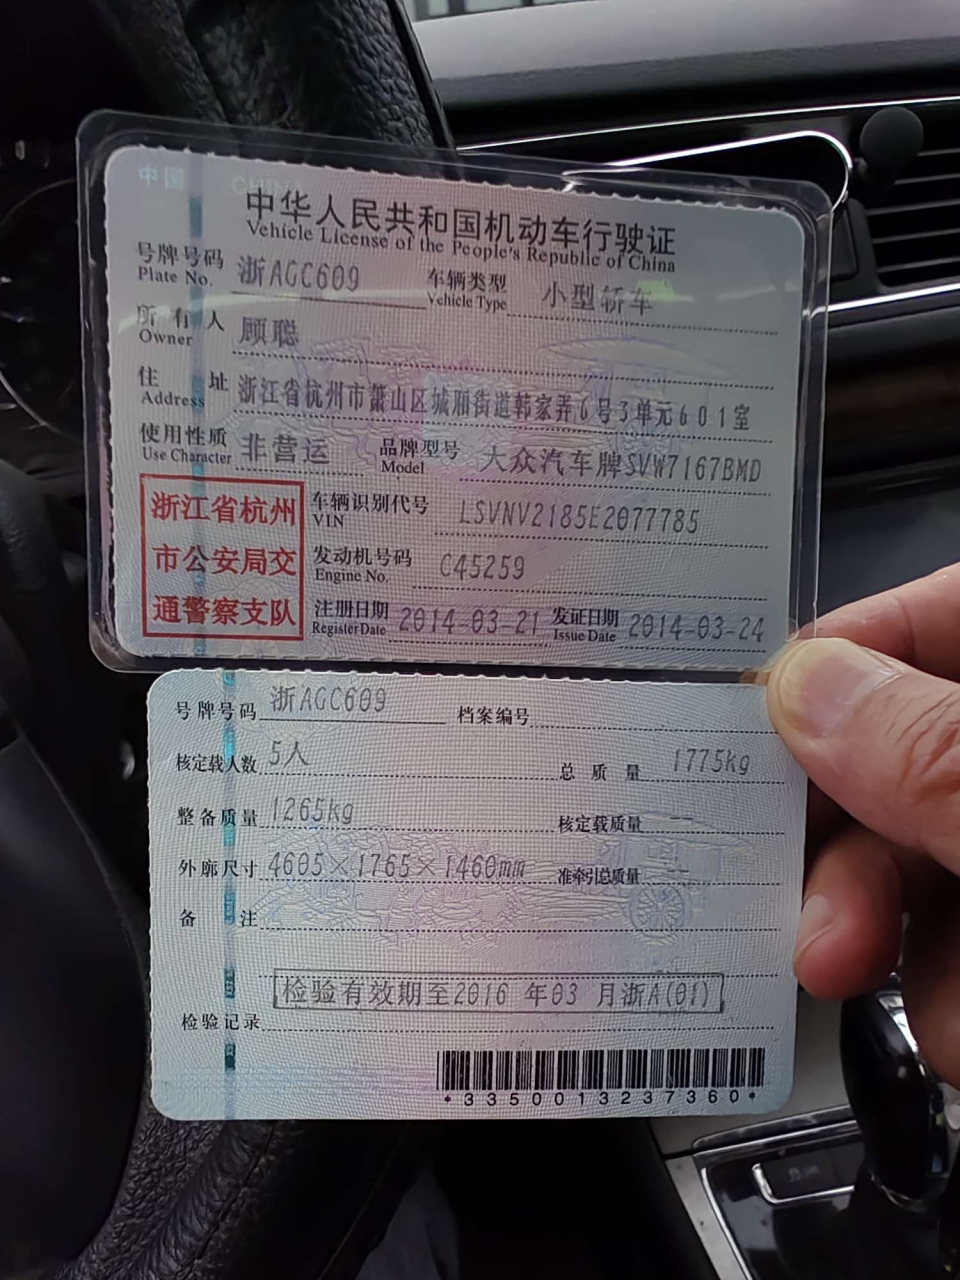 中国 CHINA
中华人民共和国机动车行驶证
Vehicle License of the People's Republic of China
号牌号码 浙AGC609 车辆类型 小型轿车
Plate No. Vehicle Type
所有人 顾聪
Owner
住址 浙江省杭州市萧山区城厢街道韩家弄6号3单元601室
Address
使用性质 非营运 品牌型号 大众汽车牌SVW7167BMD
Use Character Model
浙江省杭州
市公安局交
通警察支队
车辆识别代号 LSVNV2185E2077785
VIN
发动机号码 C45259
Engine No.
注册日期 2014-03-21 发证日期 2014-03-24
Register Date Issue Date
号牌号码 浙AGC609 档案编号
核定载人数 5人 总质量 1775kg
整备质量 1265kg 核定载质量 --
外廓尺寸 4605×1765×1460mm 准牵引总质量 --
备注
检验有效期至2016 年03 月浙A(01)
检验记录
*3350013237360*